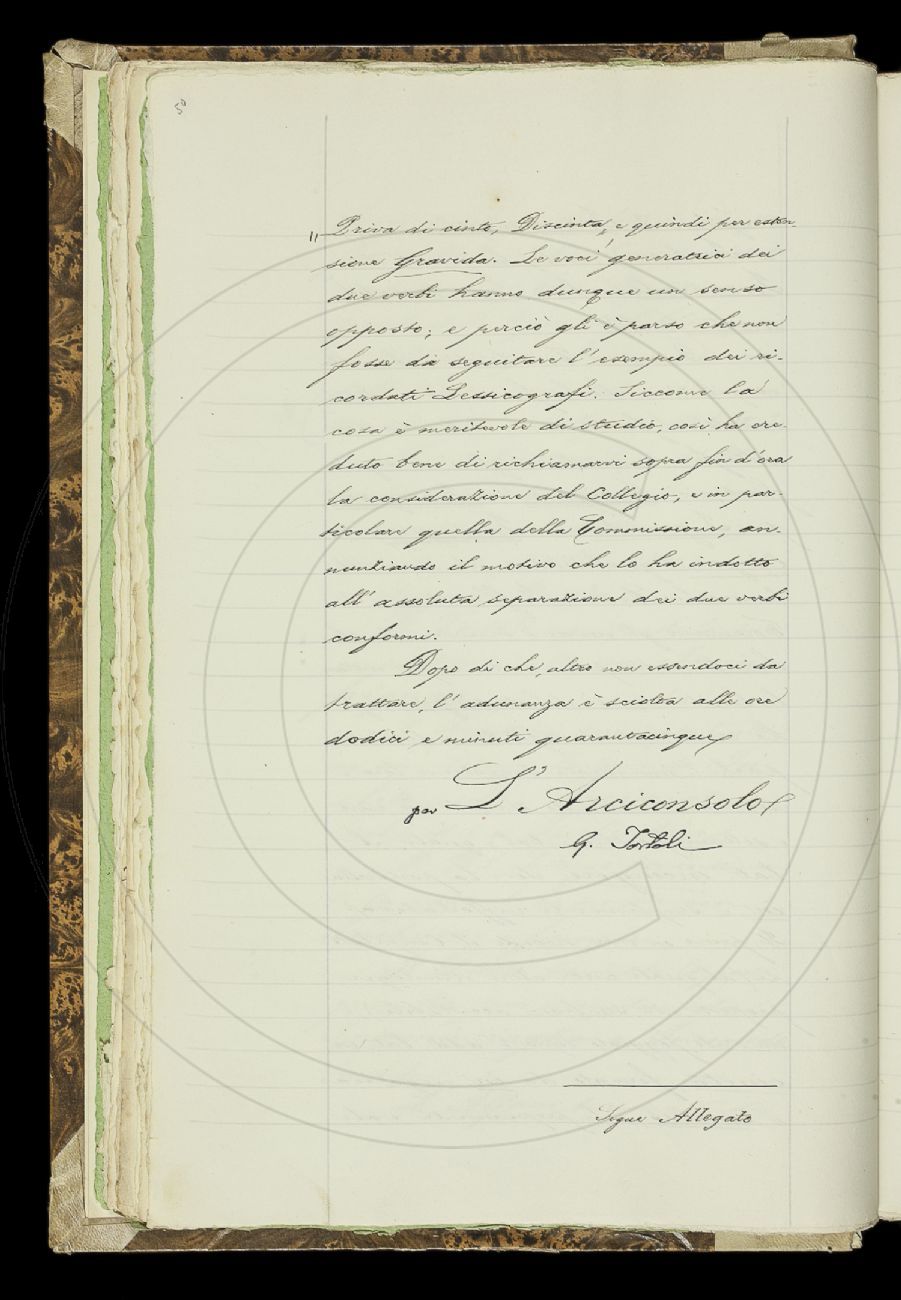 50
" Priva di cinto, Discinta, e quindi per esten-
sione Gravida. Le voci generatrici dei
due verbi hanno dunque un senso
opposto; e perciò gli è parso che non
fosse da seguitare l'esempio dei ri-
cordati Lessicografi. Siccome la
cosa è meritevole di studio, così ha cre-
duto bene di richiamarvi sopra fin d'ora
la considerazione del Collegio, e in par-
ticolare quella della Commissione, an-
nunziando il motivo che lo ha indotto
all'assoluta separazione dei due verbi
conformi.
Dopo di che, altro non essendoci da
trattare, l'adunanza è sciolta alle ore
dodici e minuti quarantacinque
per L'Arciconsolo
G. Tortoli
Segue Allegato